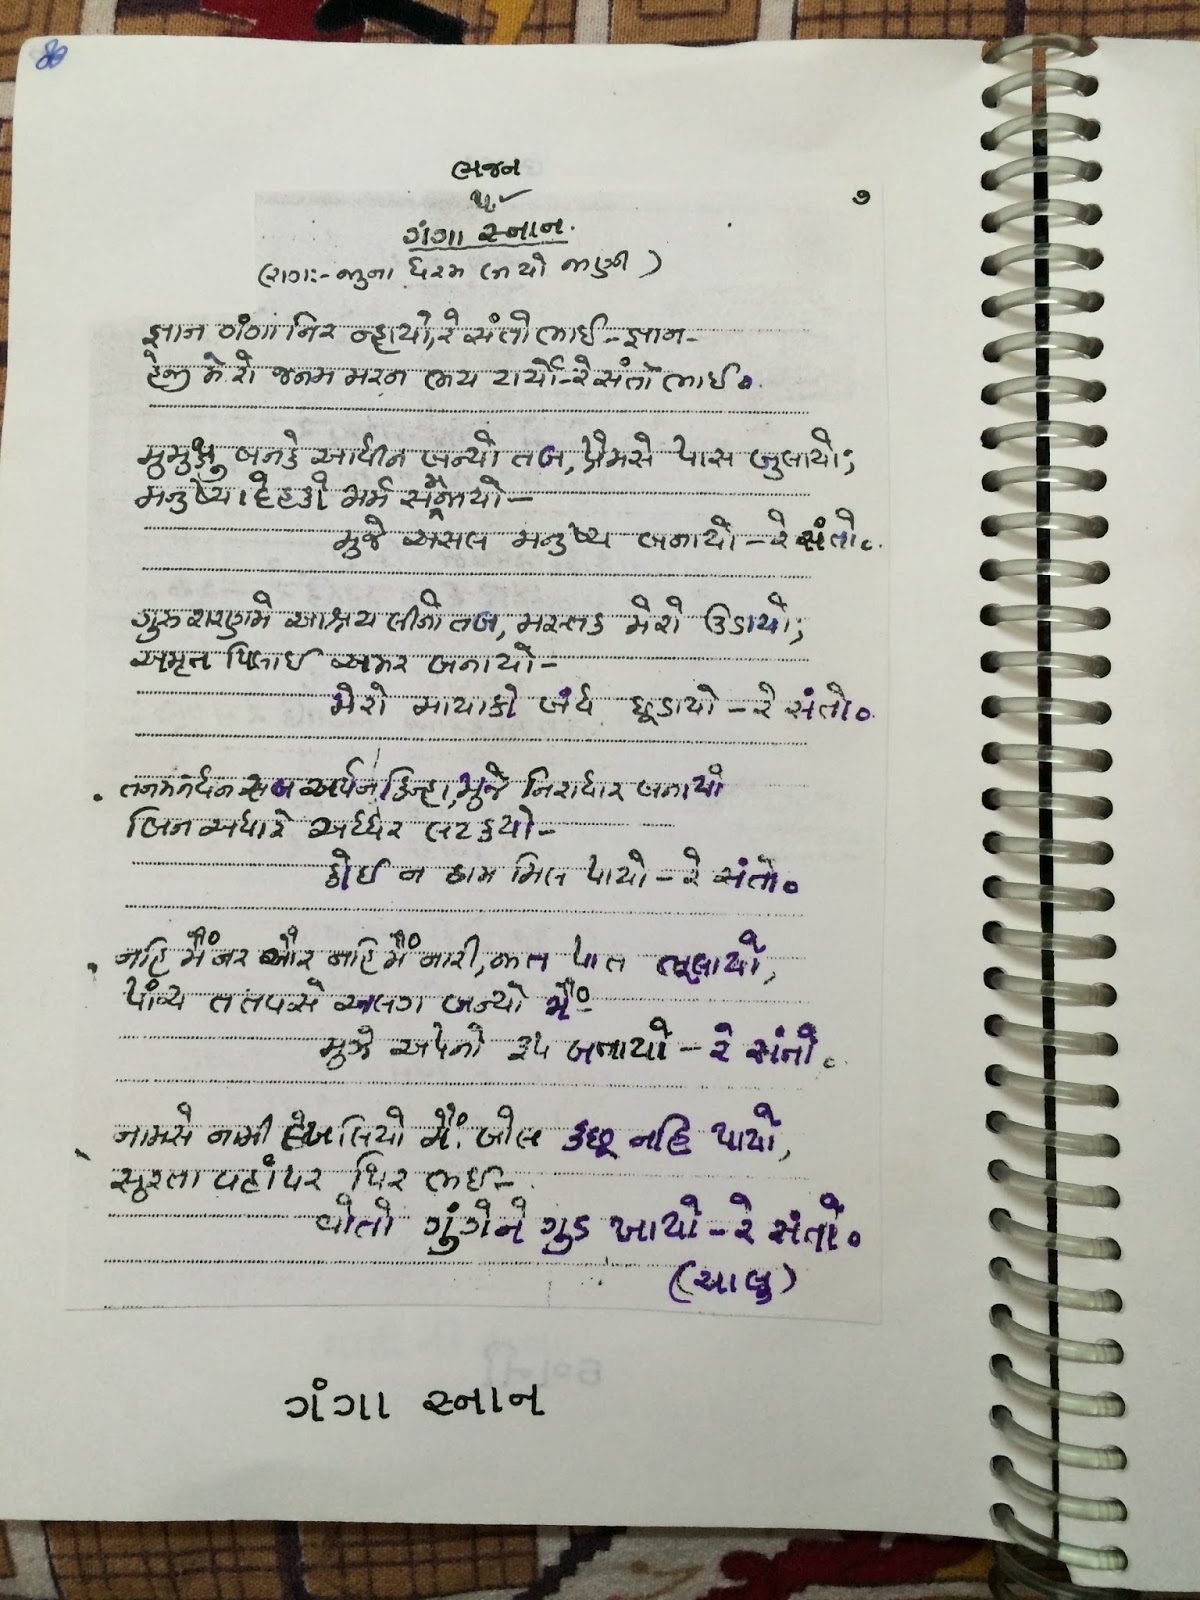 ભજન
૫
૭
ગંગા સ્નાન.
(રાગઃ- જુના ધરમ લ્યો જાણી)
જ્ઞાન ગંગા નિર ન્હાયો, રે સંતો ભાઈ - જ્ઞાન -
હેજી મેરો જનમ મરન ભય ટાર્યો - રે સંતો ભાઈ૦
મુમુક્ષુ બનકે આધીન બન્યો તબ, પ્રેમસે પાસ બુલાયો;
મનુષ્ય દેહકો મર્મ સમૂજાયો -
મુજે અસલ મનુષ્ય બનાયો - રે સંતો૦
ગુરુ શરણમે આશ્રય લીનો તબ, મસ્તક મેરો ઉડાયો;
અમૃત પિલાઈ અમર બનાયો -
મેરો માયાકો બંધ છૂડાયો - રે સંતો૦
તનમનધન સબ અર્પન કિન્હા, મુજે નિરાધાર બનાયો
બિન અધારે અધ્ધર લટકયો -
કોઈ ન ઠામ મિલ પાયો - રે સંતો૦
નહિ મૈં નર ઔર નહિ મૈં નારી, જાત પાત ભૂલાયો,
પાંચ તત્વસે અલગ બન્યો મૈં -
મુઝે અપનો રૂપ બનાયો - રે સંતો૦
નામસે નામી દેખ લિયો મૈં બોલ કછૂ નહિ પાયો,
સૂરતા વહાંપર થિર ભઈ -
વોતો ગુંગેને ગુડ ખાયો - રે સંતો૦
(ચાલુ)
ગંગા સ્નાન